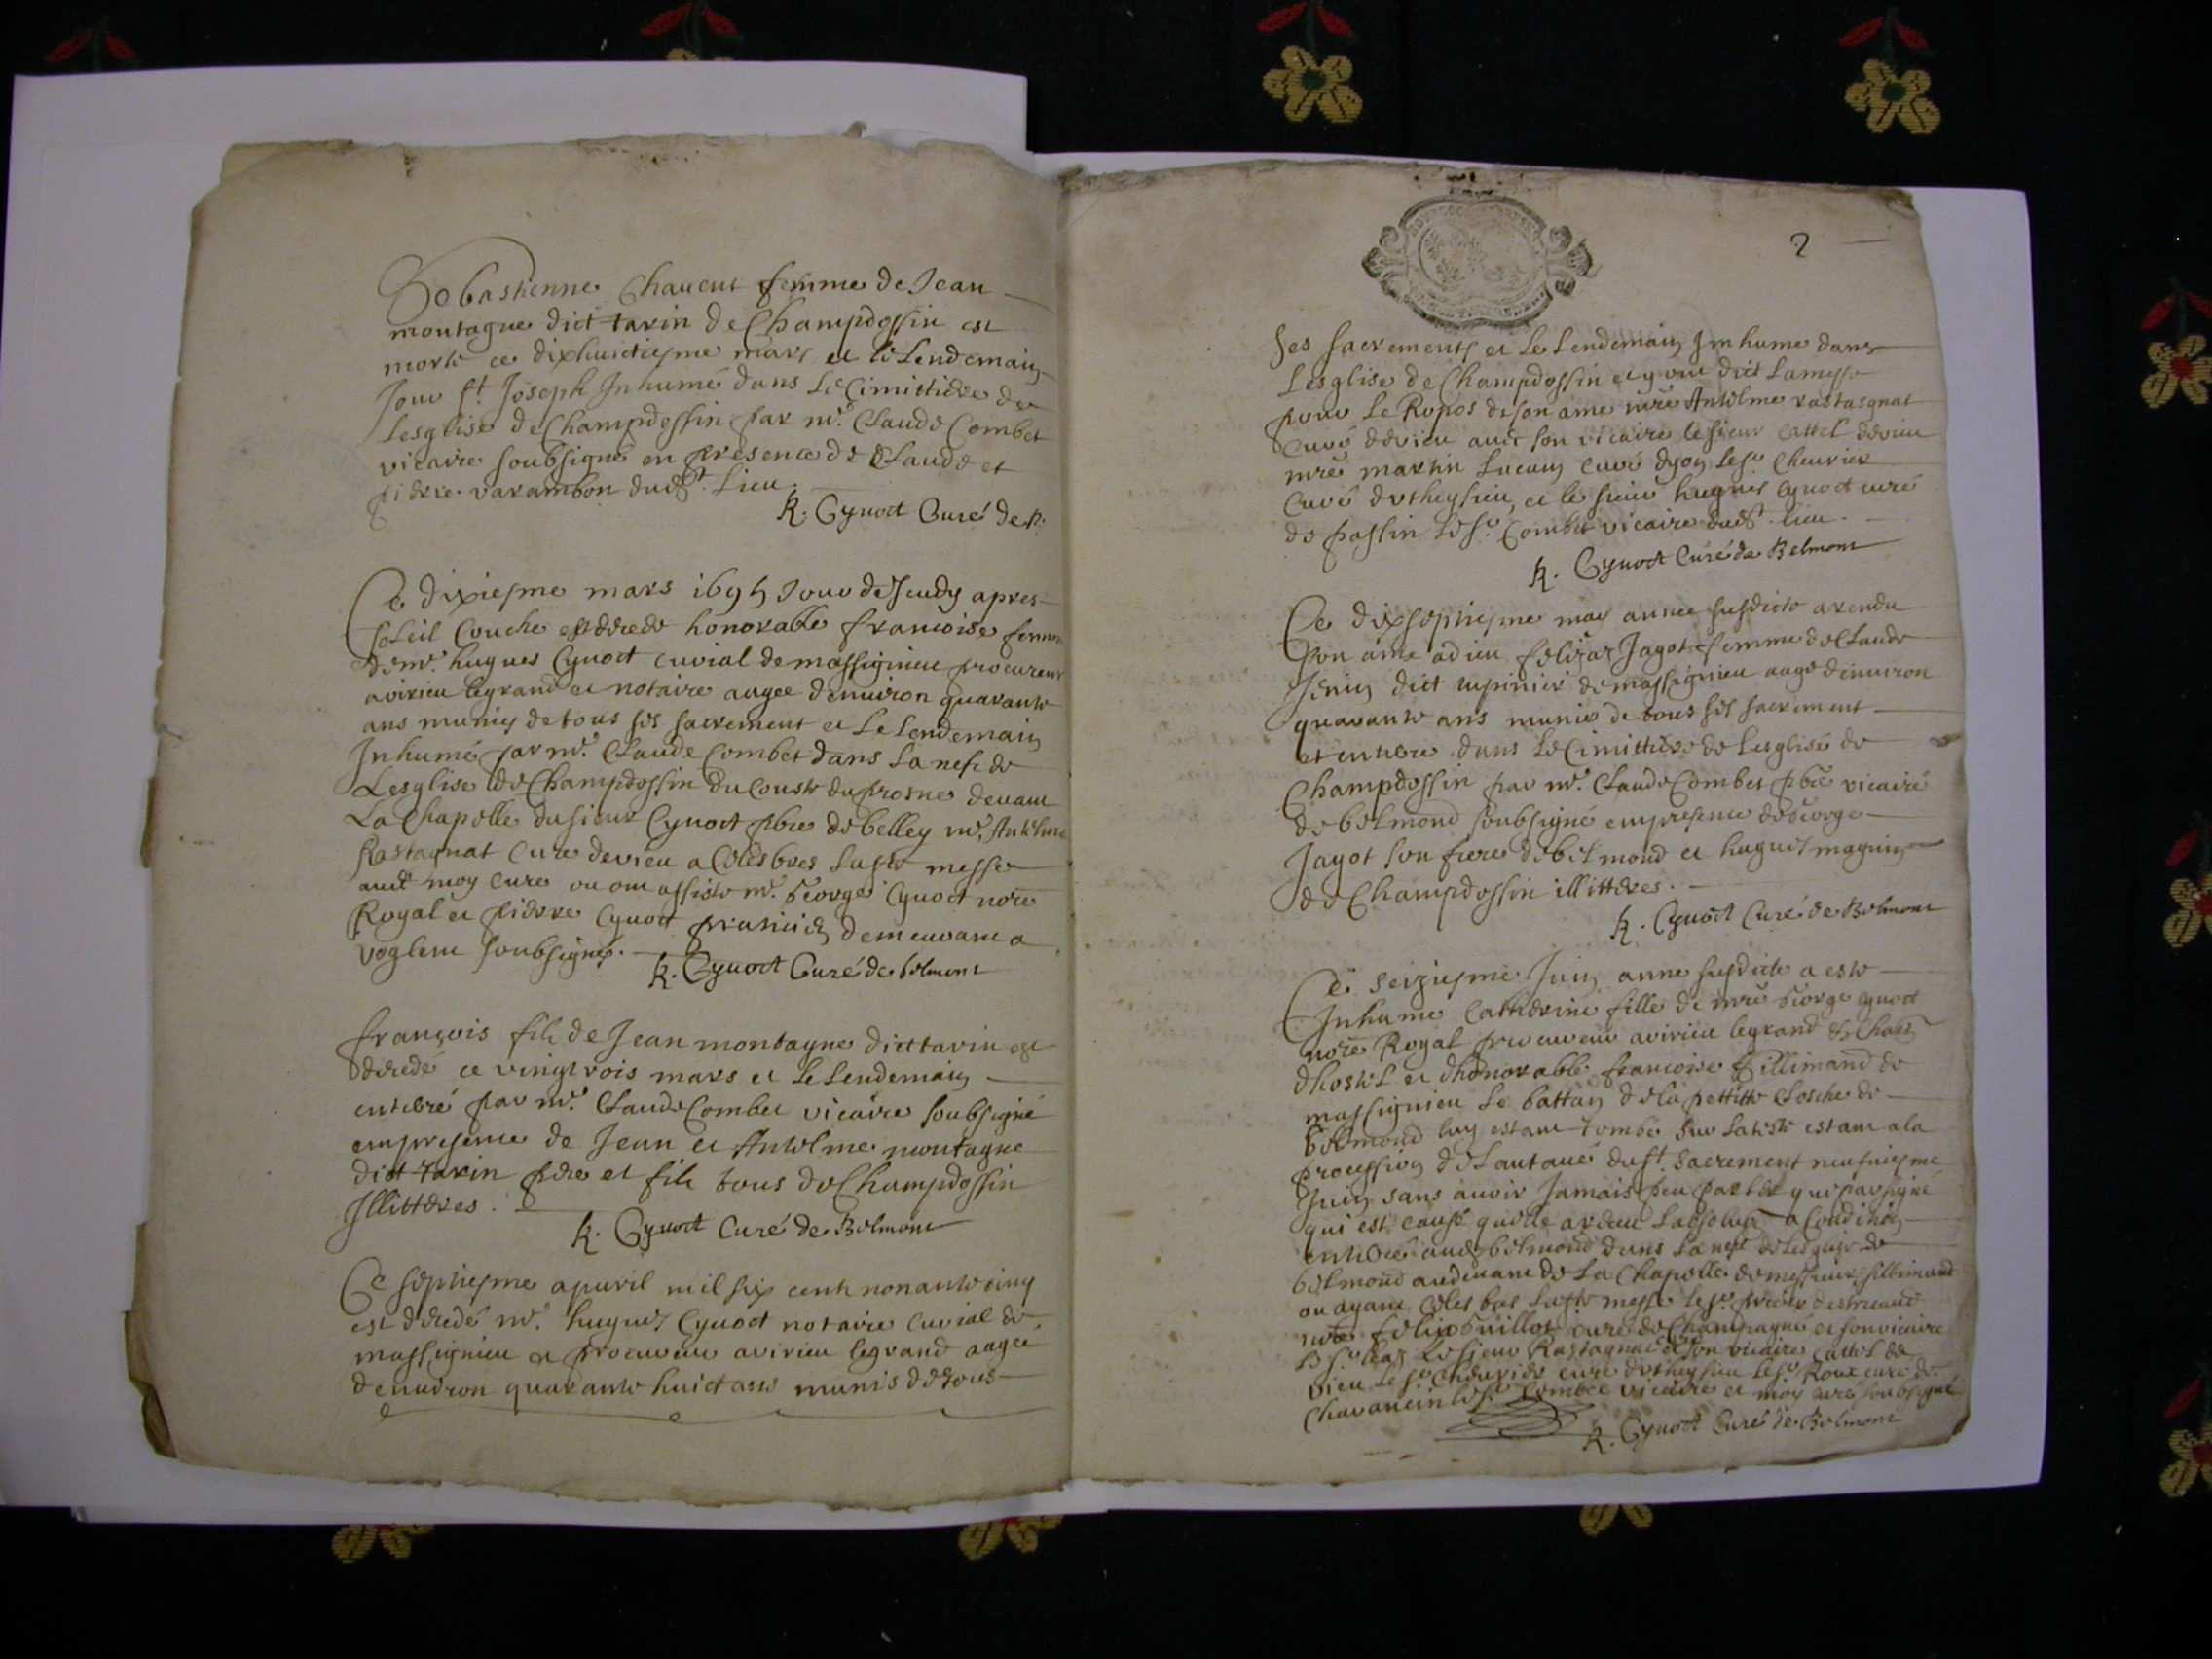 Sebastienne Chaveut femme de Jean
montagne dict tarin de Champdossin est
morte ce dixhuictiesme mars et le Lendemain
Jour st. Joseph Inhumé dans Le Cimittiere de
Lesglise de Champdossin par mr. Claude Combet
vicaire soubsigné en presence de Claude et
pierre varambon dudt. Lieu.
R. Cynoct Curé de
Ce dixiesme mars 1695 Jour de Jeudy apres
soleil Couche est decede honorable francoise femme
de mr. hugues Cynoct curial de massignieu procureur
avirieu legrand et notaire augee denuiron quarante
ans munies de tous ses sacrement et Le Lendemain
Inhumé par mr. Claude Combet dans La nefe de
Lesglise de Champdossin du Couste du prosne deuant
La Chapelle du sieur Cynoct pbre de belley mr. Antelme
Rastagnat Curé devieu a Celebres messe
moy Curé ou ont assiste mr. George Cynoct nore
Royal et pierre Cynoct demeurant a
voglem soubsignes.
R. Cynoct Curé de belmont
françois fils de Jean montagne dict tarin est
decedé ce vingtrois mars et le Lendemain
enteré par mr. Claude Combet vicaire soubsigné
empresence de Jean et Antelme montagne
dict tarin pere et fils tous de Champdossin
Illitteres.
R. Cynoct Curé de Belmont
Ce septiesme apuril mil six cents nonante cinq
est decedé mr. hugues Cynoct notaire curial de
massignieu et procureur avirieu legrand aagee
denuiron quarante huict ans munis de tous
2
ses sacrements et Le Lendemain Imhume dans
Lesglise de Champdossin et y ont dict Lamesse
pour Le Repos de son ame mre Antelme rastagnat
Curé devieu auec son vicaire le sieur cattel devieu
mre martin Lucain curé dyon Le sr. Cheurier
Curé de theysieu, et le sieur hugues Cynoct curé
de passin Le sr. Combet vicaire dudt. lieu.
R. Cynoct Curé de Belmont
Ce dixseptiesme may annee susdicte a rendu
son ame adieu Jagot femme de Claude
Jenin dict de massignieu aage denuiron
quarante ans munie de tous ses sacrement
et enterre dans Le Cimittiere de Lesglise de
Champdossin par mr. Claude Combet pbre vicaire
de belmond soubsigné empresence de George
Jagot son frere de belmond et hugues magnin
de Champdossin illitteres.
R. Cynoct Curé de Belmont
Ce seiziesme Juin anne susdicte a este
Inhume Catherine fille de mre George Cynoct
nore Royal procureur avirieu legrand
dhostel et dhonorable francoise fillimand de
massignieu Le battan de la pettitte Closche de
belmond luy estant tombé sur Lateste estant ala
procession de Lautaue du st. sacrement neufuiesme
Juin sans auoir Jamais peu parler que par signe
qui est cause quelle a rebeu Labsolu a Condition
enteré belmond dans La nefe de Lesglise de
belmond audeuant de La Chapelle de messieurs fillimand
ou ayant celebres messe Le sr.
mre felix Guillot curé de Champagne et son vicaire
Le sieur Rastagnat et son vicaire cattel de
vieu Le sr. Cheurier curé de theysieu Le sr. Roux curé de
Chavanein Le sr. Combet vicaire et moy curé soubsigné
R. Cynoct Curé de Belmont